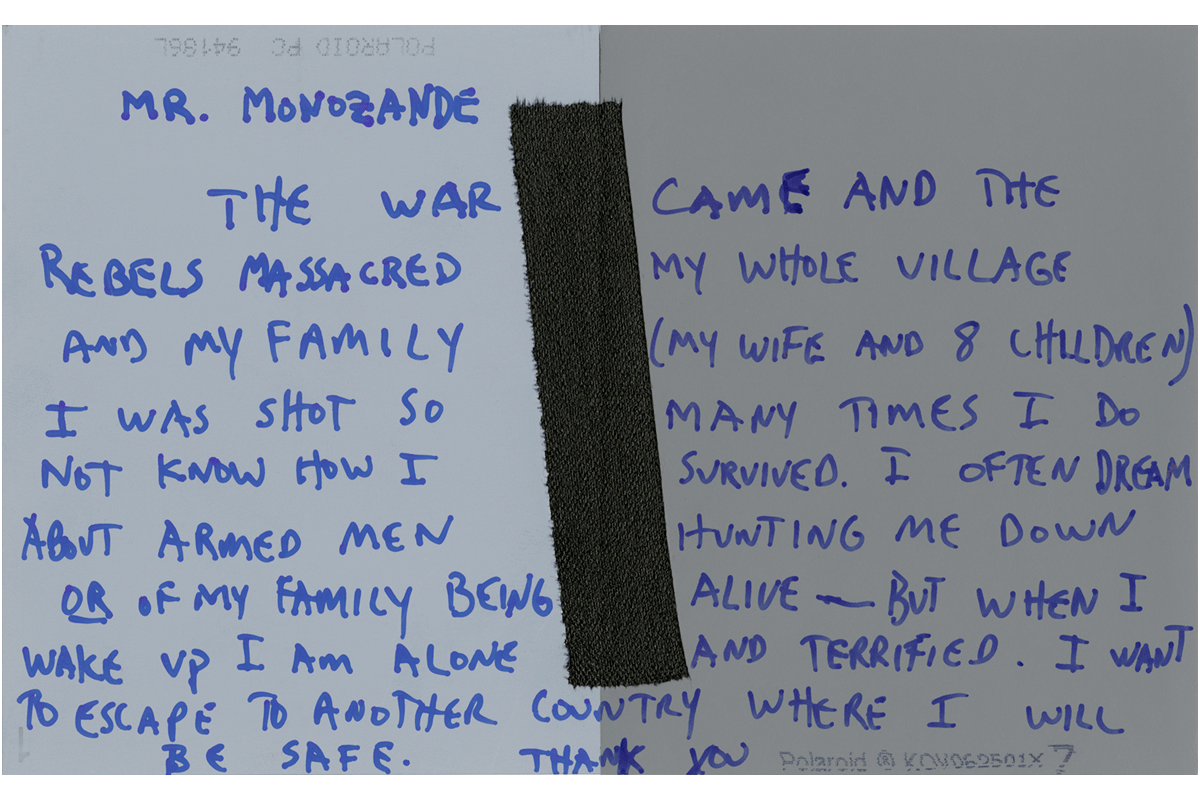 POLAROID PC 94186L
MR. MONOZANDE
THE WAR CAME AND THE
REBELS MASSACRED MY WHOLE VILLAGE
AND MY FAMILY (MY WIFE AND 8 CHILDREN)
I WAS SHOT SO MANY TIMES I DO
NOT KNOW HOW I SURVIVED. I OFTEN DREAM
ABOUT ARMED MEN HUNTING ME DOWN
OR OF MY FAMILY BEING ALIVE — BUT WHEN I
WAKE UP I AM ALONE AND TERRIFIED. I WANT
TO ESCAPE TO ANOTHER COUNTRY WHERE I WILL
BE SAFE. THANK YOU
1 Polaroid ® KOV062501X 7